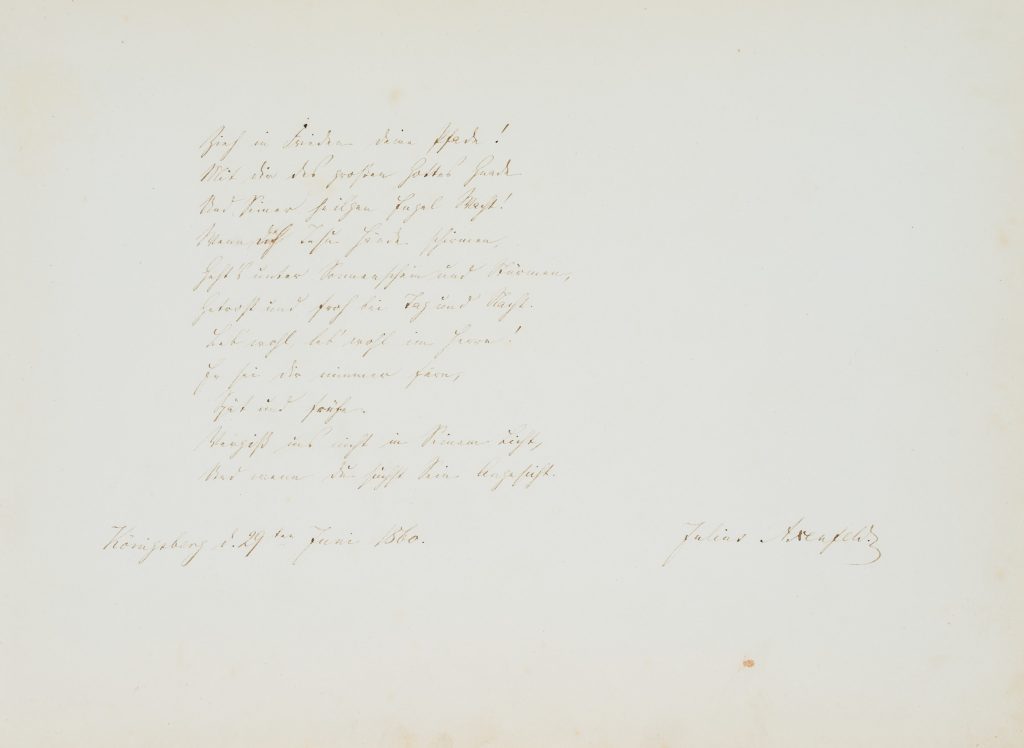 Zieh in Frieden deine Pfade!
Mit dir des großen Gottes Gnade
Und Seiner heilgen Engel Wacht!
Wenn dich Jesu Hände schirmen,
Geht's unter Sonnenschein und Stürmen,
Getrost und froh bei Tag und Nacht.
Leb' wohl, leb' wohl im Herrn!
Er sei dir nimmer fern,
Spät und frühe.
Vergiß uns nicht in Seinem Licht,
Und wenn du suchst Sein Angesicht.
Königsberg d. 29ten Juni 1860.
Julius Axenfeld.